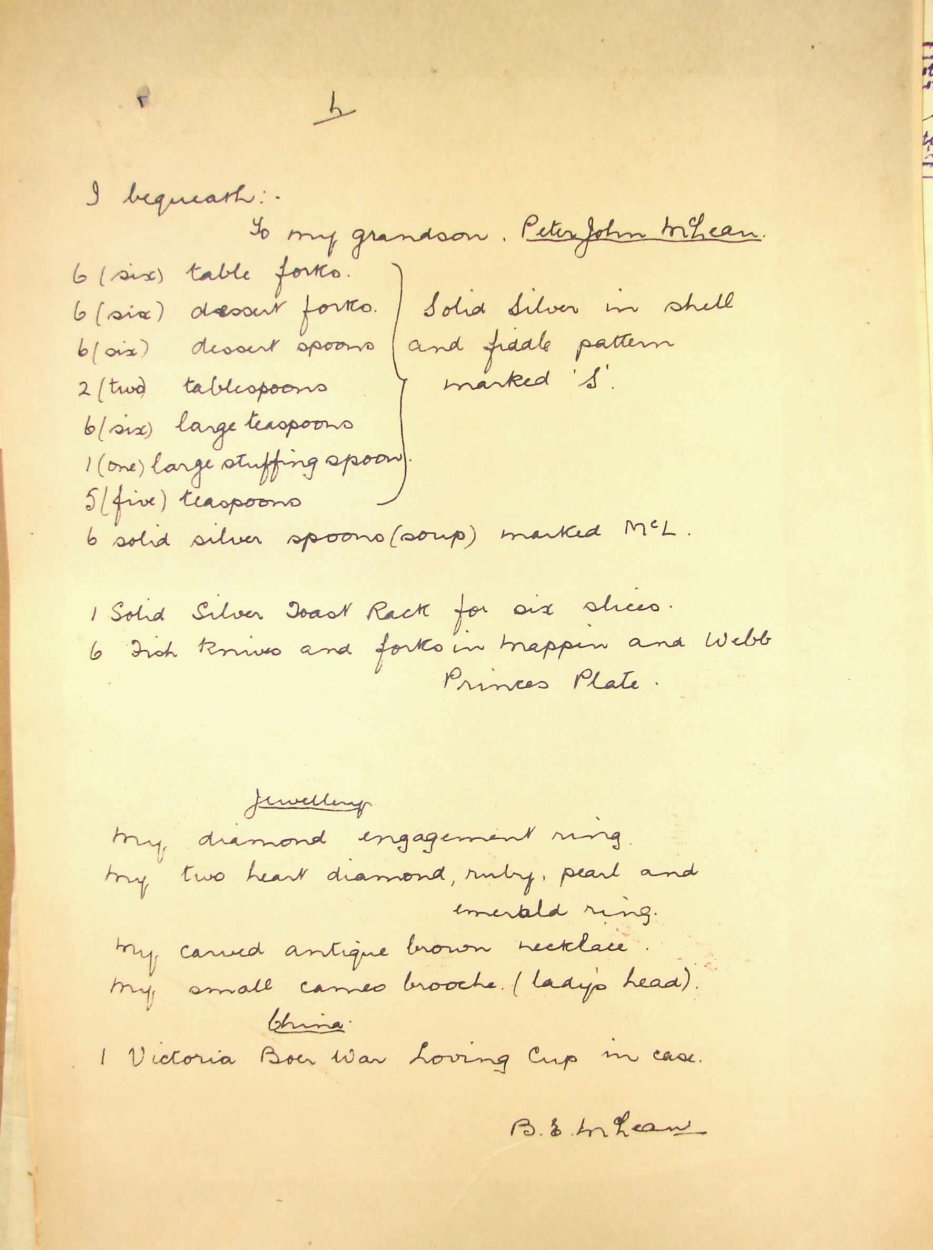 4
I bequeath:-
To my grandson. Peter John McLean.
6 (six) table forks.
6 (six) dessert forks.
6 (six) dessert spoons
2 (two) tablespoons
6 (six) large teaspoons
1 (one) large stuffing spoon.
5 (five) teaspoons
Solid Silver in shell
and fiddle pattern
marked 'S'.
6 solid silver spoons (soup) marked McL.
1 Solid Silver Toast Rack for six slices.
6 Fish knives and forks in Mappin and Webb
Princes Plate.
Jewellery
My diamond engagement ring.
My two heart diamond, ruby, pearl and
emerald ring.
My carved antique brown necklace.
My small cameo brooche. (lady's head).
China.
1 Victoria Boer War Loving Cup in case.
B. E. McLean